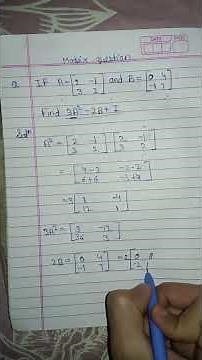 Matrix Question
Q. If A = [2 -1
3 2] and B = [0 4
-1 7]
Find 3A² - 2B + I
Solⁿ
A² = [2 -1
3 2] [2 -1
3 2]
= [4-3 -2-2
6+6 -3+4]
= [1 -4
12 1]
3A² = [3 -12
36 3]
2B = [0 4
-1 7] = [0 8
-2